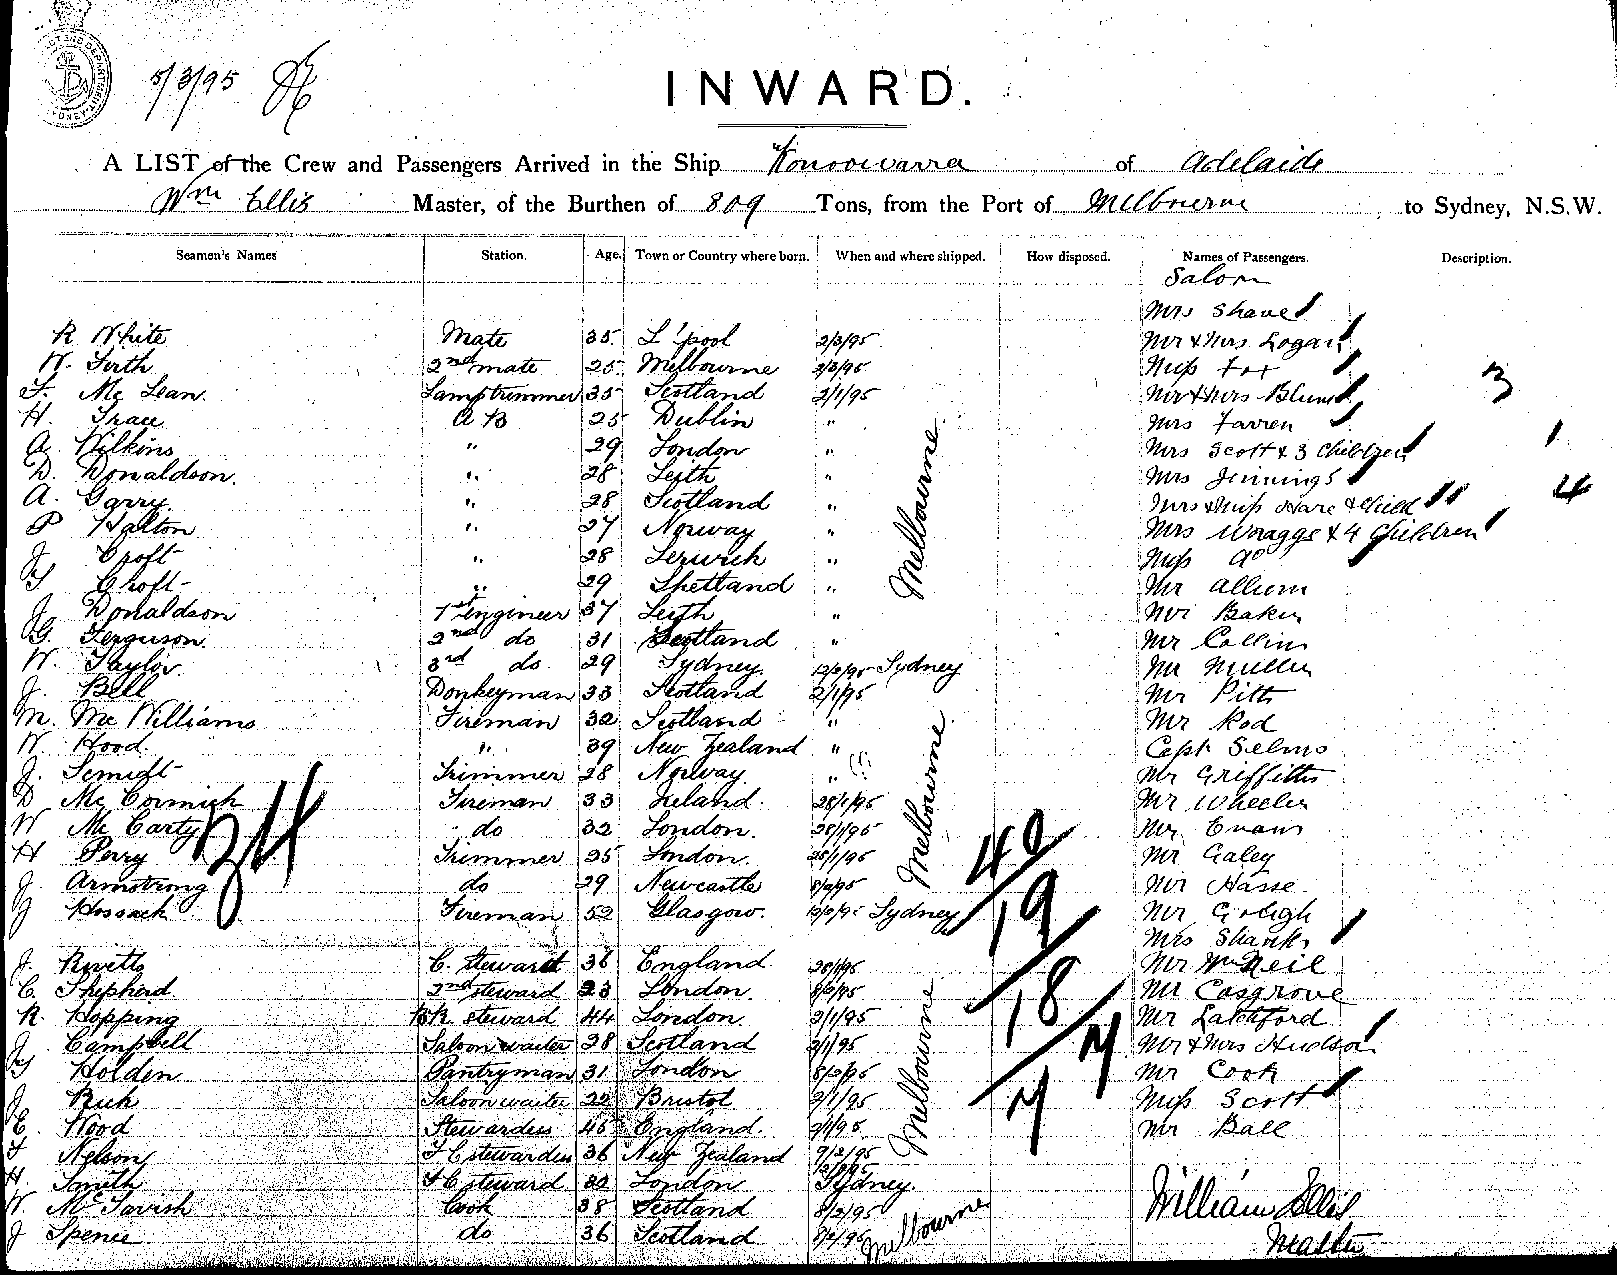 5/3/95
INWARD.
A LIST of the Crew and Passengers Arrived in the Ship "Konoowarra of Adelaide
Wm Ellis Master, of the Burthen of 809 Tons, from the Port of Melbourne to Sydney, N.S.W.
Seamen's Names Station. Age. Town or Country where born. When and where shipped. How disposed. Names of Passengers. Description.
Saloon
Mrs Shave
R White Mate 35 L'pool 2/3/95 Mr & Mrs Logan
W. Firth 2nd mate 25 Melbourne 2/3/95 Miss Fox
F. Mc Lean. Lamptrimmer 35 Scotland 2/1/95 Mr & Mrs Blum 3
H. Grace A B 25 Dublin " Mrs Farren
A. Wilkins " 29 London " Mrs Scott & 3 Children 1
D. Donaldson. " 28 Leith " Mrs Jennings
A. Garry. " 28 Scotland " Mrs & Miss Hare & Child 4
P Halton " 27 Norway " Mrs Wragge & 4 Children
J. Croft " 28 Lerwick " Miss do
Croft " 29 Shetland " Mr Allum
J. Donaldson 1st Engineer 37 Leith " Mr Baker
G. Ferguson. 2nd do 31 Scotland " Mr Collins
W. Taylor. 3rd do. 29 Sydney. 12/2/95 Sydney Mr Muller
J. Bell Donkeyman 33 Scotland 2/1/95 Mr Pitt
M. Mc Williams Fireman 32 Scotland " Mr Rod
W. Hood. " 39 New Zealand " Capt Selmo
J. Semidt Trimmer 28 Norway. " Mr Griffiths
D Mc Cormick Fireman 33 Ireland. 28/1/95 Mr Wheeler
W Mc Carty do 32 London. 28/1/95 Mr Evans
H Perry Trimmer 25 London. 28/1/95 Mr Galey
J. Armstrong do 29 Newcastle 8/2/95 Mr Hasse
J Hossack Fireman 52 Glasgow. 12/2/95 Sydney Mr Gough
Mrs Shanks
J. Rivetts C. Steward 36 England 28/1/95 Mr McNeil
C. Shepherd. 2nd steward 23 London. 8/2/95 Mr Cosgrove
R. Hopping BR steward 44 London 2/1/95 Mr Latchford
J. Campbell Saloon waiter 28 Scotland 2/1/95 Mr & Mrs Hudson
Holden Pantryman 31 London 8/2/95 Mr Cook
J. Rich Saloon waiter 22 Bristol 2/1/95 Miss Scott
E. Wood Stewardess 45 England. 2/1/95 Mr Ball
F Nelson F C stewardess 36 New Zealand 9/2/95
H. Smith F C steward 32 London 12/2/95 Sydney.
W. McTavish Cook 38 Scotland 8/2/95 William Ellis
J Spence do 36 Scotland 8/2/95 Melbourne Master
Melbourne
Melbourne
Melbourne
34
42
19
18